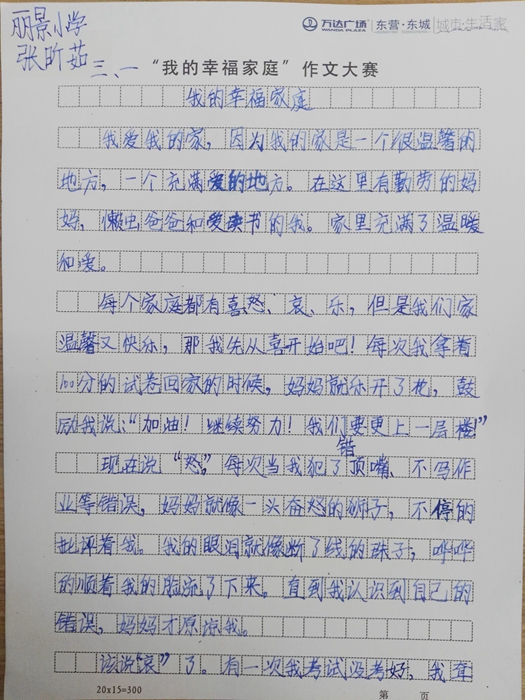 丽景小学
万达广场 WANDA PLAZA 东营·东城 城市·生活家
张昕茹
三、一
"我的幸福家庭"作文大赛
我的幸福家庭
我爱我的家，因为我的家是一个很温馨的
地方，一个充满爱的地方。在这里有勤劳的妈
妈，懒虫爸爸和爱读书的我。家里充满了温暖
和爱。
每个家庭都有喜、怒、哀、乐，但是我们家
温馨又快乐，那我先从喜开始吧！每次我拿着
100分的试卷回家的时候，妈妈就乐开了花，鼓
励我说："加油！继续努力！我们要更上一层楼！"
现在说"怒"。每次当我犯了错顶嘴、不写作
业等错误，妈妈就像一头奋怒的狮子，不停的
批评着我。我的眼泪就像断了线的珠子，哗哗
的顺着我的脸流了下来。直到我认识到自己的
错误，妈妈才原凉我。
该说"哀"了。有一次我考试没考好，我牵
20x15=300 第 页